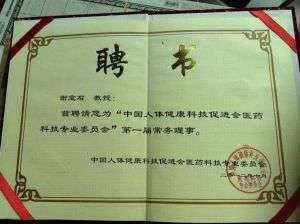 聘书
教授：
兹聘请您为“中国人体健康科技促进会医药
科技专业委员会”第一届常务理事。
中国人体健康科技促进会医药科技专业委员会